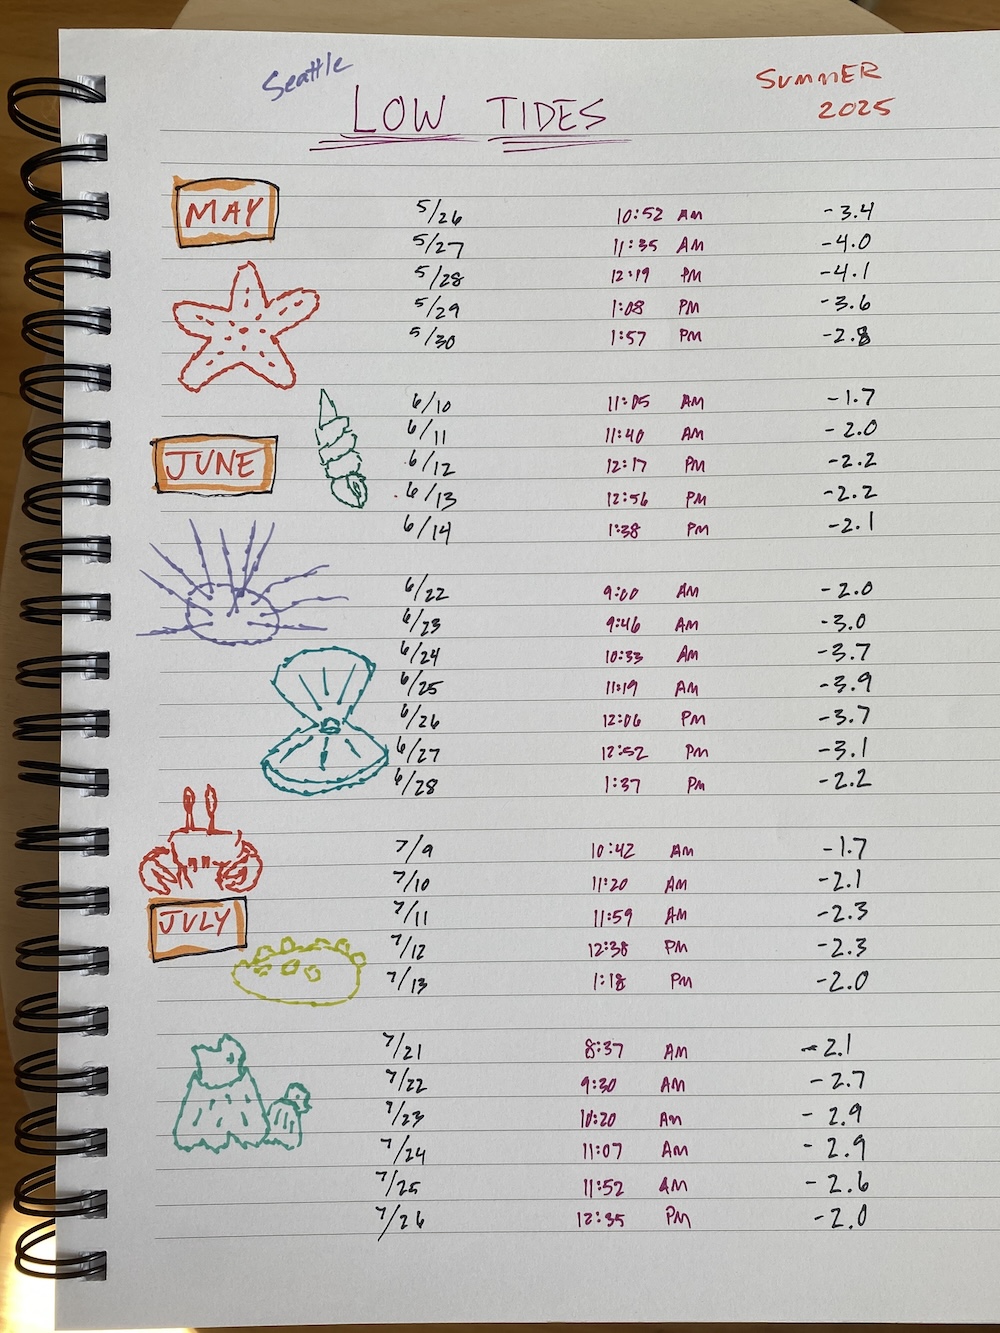 Seattle
LOW TIDES
SUMMER
2025
MAY
5/26 10:52 AM -3.4
5/27 11:35 AM -4.0
5/28 12:19 PM -4.1
5/29 1:08 PM -3.6
5/30 1:57 PM -2.8
6/10 11:05 AM -1.7
6/11 11:40 AM -2.0
JUNE
6/12 12:17 PM -2.2
6/13 12:56 PM -2.2
6/14 1:38 PM -2.1
6/22 9:00 AM -2.0
6/23 9:46 AM -3.0
6/24 10:33 AM -3.7
6/25 11:19 AM -3.9
6/26 12:06 PM -3.7
6/27 12:52 PM -3.1
6/28 1:37 PM -2.2
7/9 10:42 AM -1.7
7/10 11:20 AM -2.1
JULY
7/11 11:59 AM -2.3
7/12 12:38 PM -2.3
7/13 1:18 PM -2.0
7/21 8:37 AM -2.1
7/22 9:30 AM -2.7
7/23 10:20 AM -2.9
7/24 11:07 AM -2.9
7/25 11:52 AM -2.6
7/26 12:35 PM -2.0